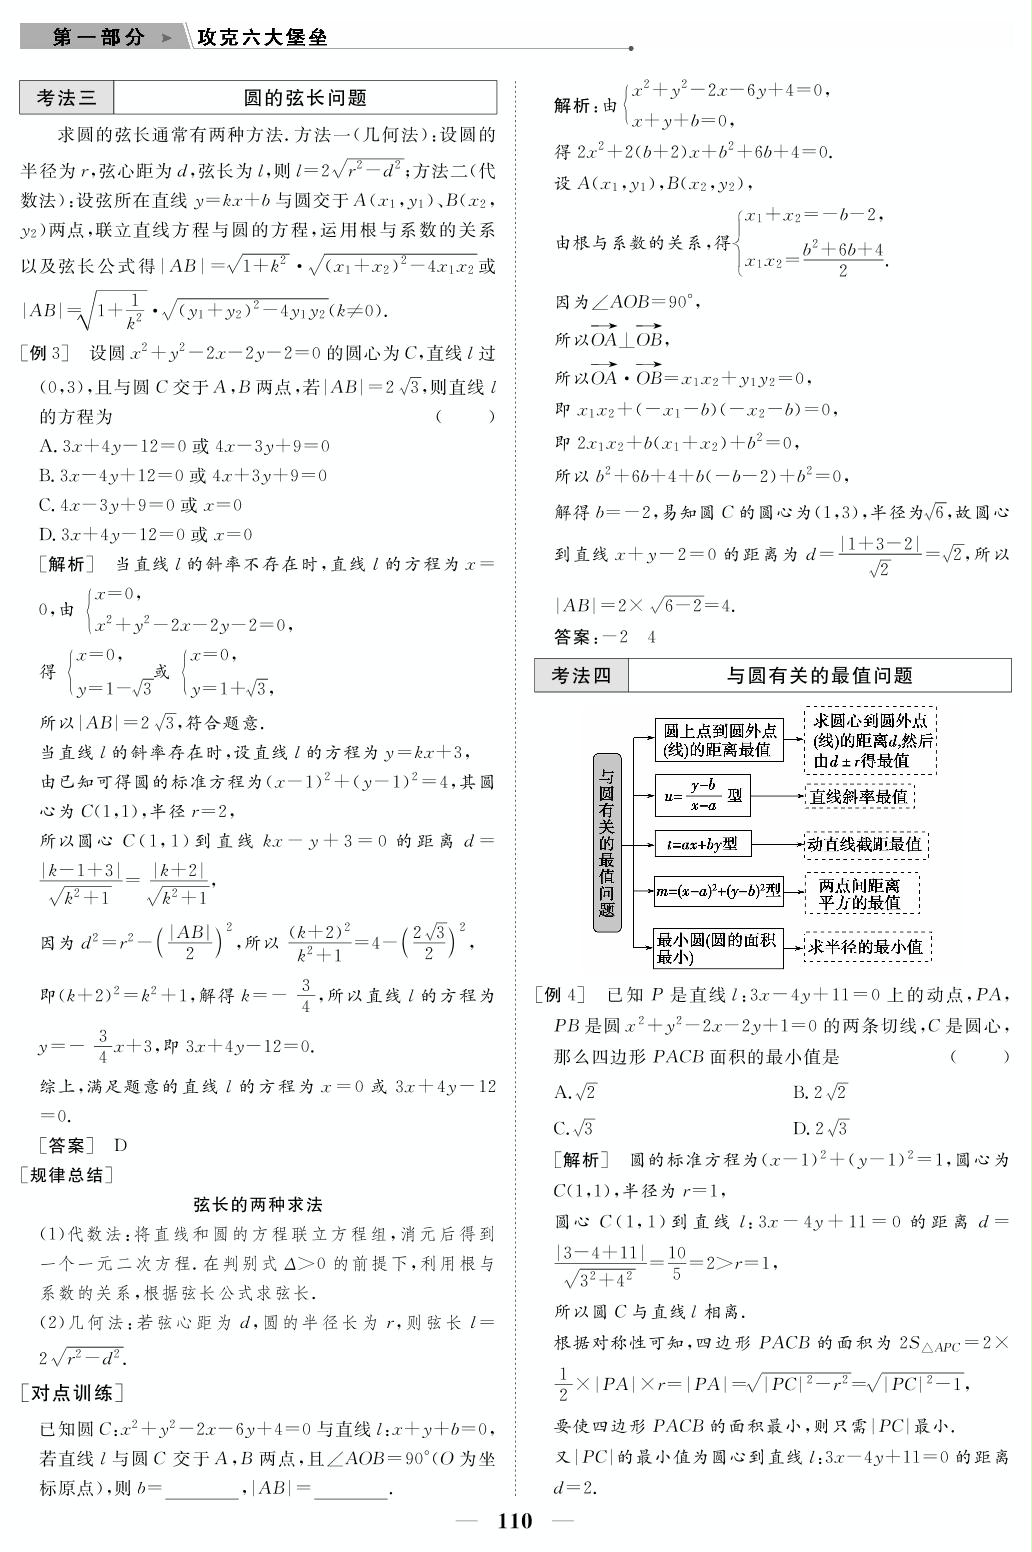 第一部分 ➤ 攻克六大堡垒
考法三 圆的弦长问题
求圆的弦长通常有两种方法.方法一(几何法):设圆的
半径为 r,弦心距为 d,弦长为 l,则 l=2√(r²−d²);方法二(代
数法):设弦所在直线 y=kx+b 与圆交于 A(x₁,y₁)、B(x₂,
y₂)两点,联立直线方程与圆的方程,运用根与系数的关系
以及弦长公式得|AB|=√(1+k²)•√((x₁+x₂)²−4x₁x₂)或
|AB|=√(1+1/k²)•√((y₁+y₂)²−4y₁y₂)(k≠0).
[例3] 设圆 x²+y²−2x−2y−2=0 的圆心为 C,直线 l 过
(0,3),且与圆 C 交于 A,B 两点,若|AB|=2√3,则直线 l
的方程为 ( )
A. 3x+4y−12=0 或 4x−3y+9=0
B. 3x−4y+12=0 或 4x+3y+9=0
C. 4x−3y+9=0 或 x=0
D. 3x+4y−12=0 或 x=0
[解析] 当直线 l 的斜率不存在时,直线 l 的方程为 x=
0,由 {x=0,
x²+y²−2x−2y−2=0,
得 {x=0, 或 {x=0,
y=1−√3 y=1+√3,
所以|AB|=2√3,符合题意.
当直线 l 的斜率存在时,设直线 l 的方程为 y=kx+3,
由已知可得圆的标准方程为(x−1)²+(y−1)²=4,其圆
心为 C(1,1),半径 r=2,
所以圆心 C(1,1)到直线 kx−y+3=0 的距离 d=
|k−1+3|/√(k²+1)=|k+2|/√(k²+1),
因为 d²=r²−(|AB|/2)²,所以 (k+2)²/(k²+1)=4−(2√3/2)²,
即(k+2)²=k²+1,解得 k=−3/4,所以直线 l 的方程为
y=−3/4x+3,即 3x+4y−12=0.
综上,满足题意的直线 l 的方程为 x=0 或 3x+4y−12
=0.
[答案] D
[规律总结]
弦长的两种求法
(1)代数法:将直线和圆的方程联立方程组,消元后得到
一个一元二次方程.在判别式 Δ>0 的前提下,利用根与
系数的关系,根据弦长公式求弦长.
(2)几何法:若弦心距为 d,圆的半径长为 r,则弦长 l=
2√(r²−d²).
[对点训练]
已知圆 C:x²+y²−2x−6y+4=0 与直线 l:x+y+b=0,
若直线 l 与圆 C 交于 A,B 两点,且∠AOB=90°(O 为坐
标原点),则 b=________,|AB|=________.
解析:由{x²+y²−2x−6y+4=0,
x+y+b=0,
得 2x²+2(b+2)x+b²+6b+4=0.
设 A(x₁,y₁),B(x₂,y₂),
由根与系数的关系,得{x₁+x₂=−b−2,
x₁x₂=(b²+6b+4)/2.
因为∠AOB=90°,
所以→OA⊥→OB,
所以→OA•→OB=x₁x₂+y₁y₂=0,
即 x₁x₂+(−x₁−b)(−x₂−b)=0,
即 2x₁x₂+b(x₁+x₂)+b²=0,
所以 b²+6b+4+b(−b−2)+b²=0,
解得 b=−2,易知圆 C 的圆心为(1,3),半径为√6,故圆心
到直线 x+y−2=0 的距离为 d=|1+3−2|/√2=√2,所以
|AB|=2×√(6−2)=4.
答案:−2 4
考法四 与圆有关的最值问题
与圆有关的最值问题
圆上点到圆外点
(线)的距离最值
求圆心到圆外点
(线)的距离d,然后
由d±r得最值
u=(y−b)/(x−a) 型
直线斜率最值
t=ax+by型
动直线截距最值
m=(x−a)²+(y−b)²型
两点间距离
平方的最值
最小圆(圆的面积
最小)
求半径的最小值
[例4] 已知 P 是直线 l:3x−4y+11=0 上的动点,PA,
PB 是圆 x²+y²−2x−2y+1=0 的两条切线,C 是圆心,
那么四边形 PACB 面积的最小值是 ( )
A.√2 B. 2√2
C.√3 D. 2√3
[解析] 圆的标准方程为(x−1)²+(y−1)²=1,圆心为
C(1,1),半径为 r=1,
圆心 C(1,1)到直线 l:3x−4y+11=0 的距离 d=
|3−4+11|/√(3²+4²)=10/5=2>r=1,
所以圆 C 与直线 l 相离.
根据对称性可知,四边形 PACB 的面积为 2S△APC=2×
1/2×|PA|×r=|PA|=√(|PC|²−r²)=√(|PC|²−1),
要使四边形 PACB 的面积最小,则只需|PC|最小.
又|PC|的最小值为圆心到直线 l:3x−4y+11=0 的距离
d=2.
— 110 —